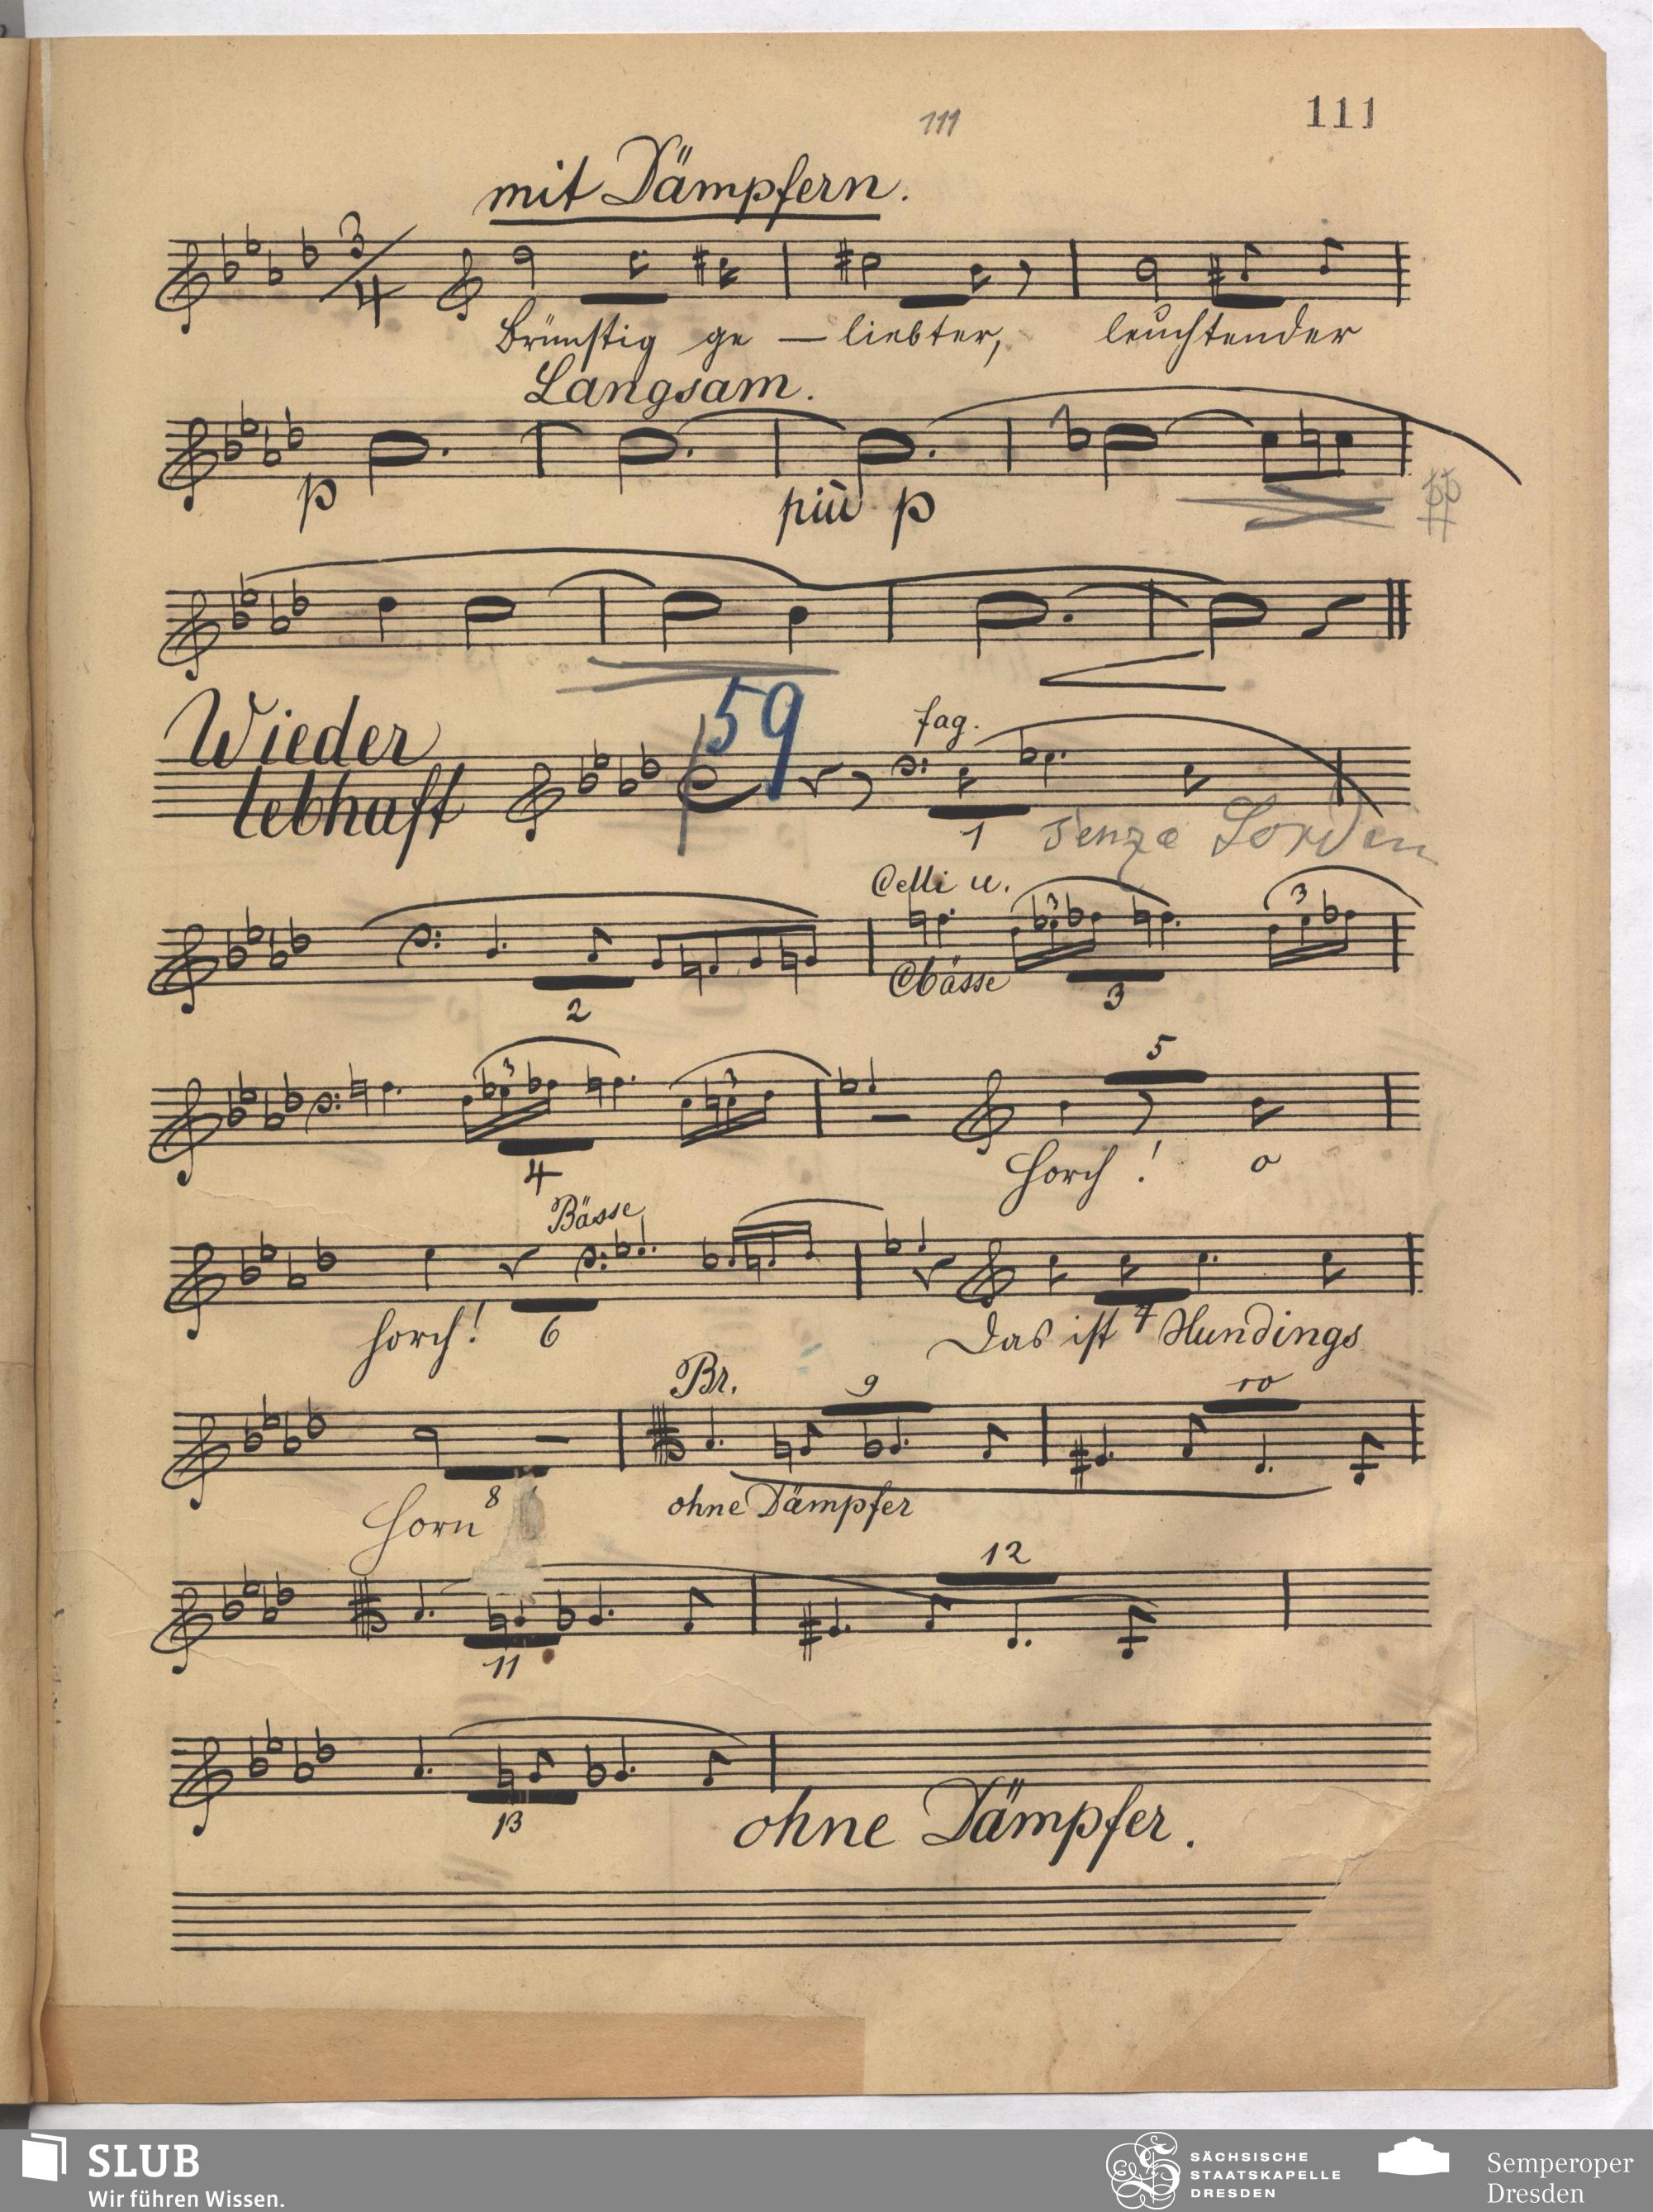 111
111
mit Dämpfern.
3/4
Brünstig ge – liebter, leuchtender
Langsam.
p più p pp
59
Wieder
lebhaft
fag.
1 senza Sordin
Celli u.
Cbässe
3 3
2 3
3 3
5
4
Horch! o
Bässe
horch! 6 Das ist 7 Hundings
Br. 9 10
8
Horn ohne Dämpfer
12
11
13
ohne Dämpfer.
SLUB
Wir führen Wissen.
SÄCHSISCHE
STAATSKAPELLE
DRESDEN
Semperoper
Dresden